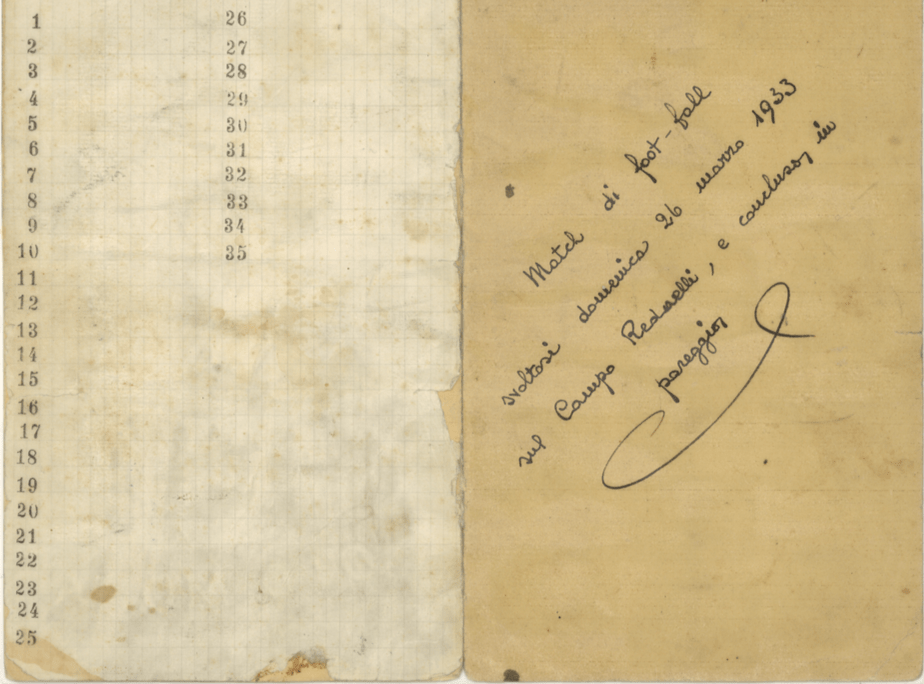 1 26
2 27
3 28
4 29
5 30
6 31
7 32
8 33
9 34
10 35
11
12
13
14
15
16
17
18
19
20
21
22
23
24
25
Match di foot-ball
svoltosi domenica 26 marzo 1933
sul Campo Redaelli, e concluso in
pareggio